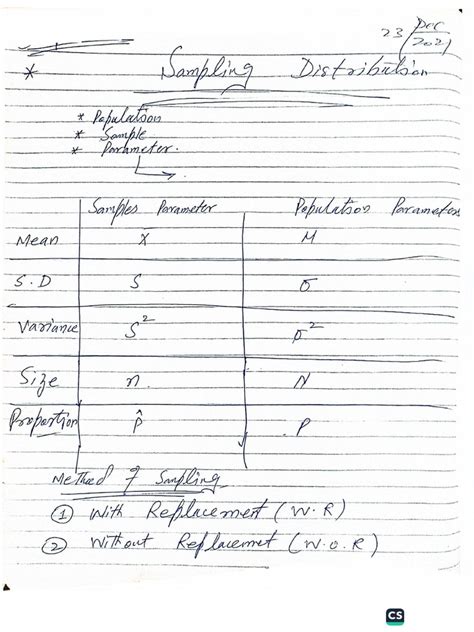 23 Dec
2021
* Sampling Distribution
* Population
* Sample
* Parameter.
Samples Parameter Population Parameter
Mean X M
S.D S σ
Variance S² σ²
Size n. N
Proportion p̂ .P
Method of Sampling
① With Replacement (W.R)
② Without Replacemet (W.O.R)
CS